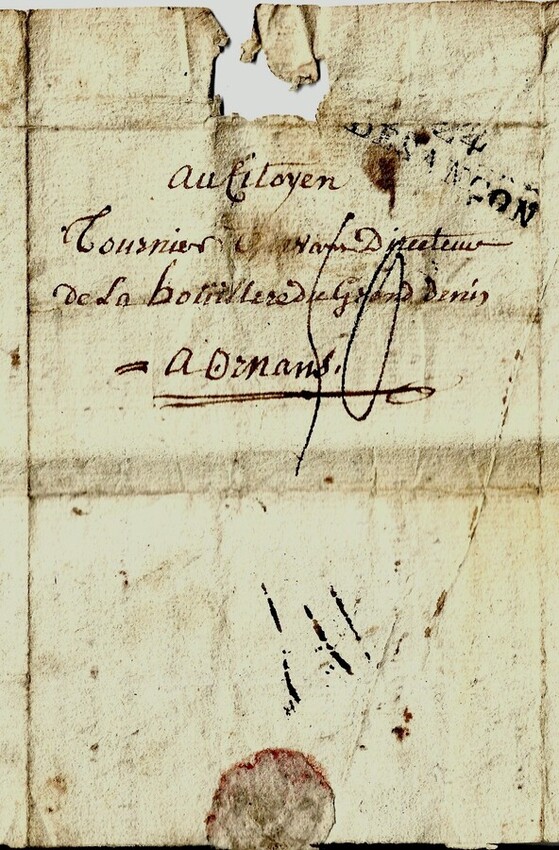 24
BESANÇON
Au Citoyen
Tournier Directeur
De La houillere du Grand Denis
= A Ornans.